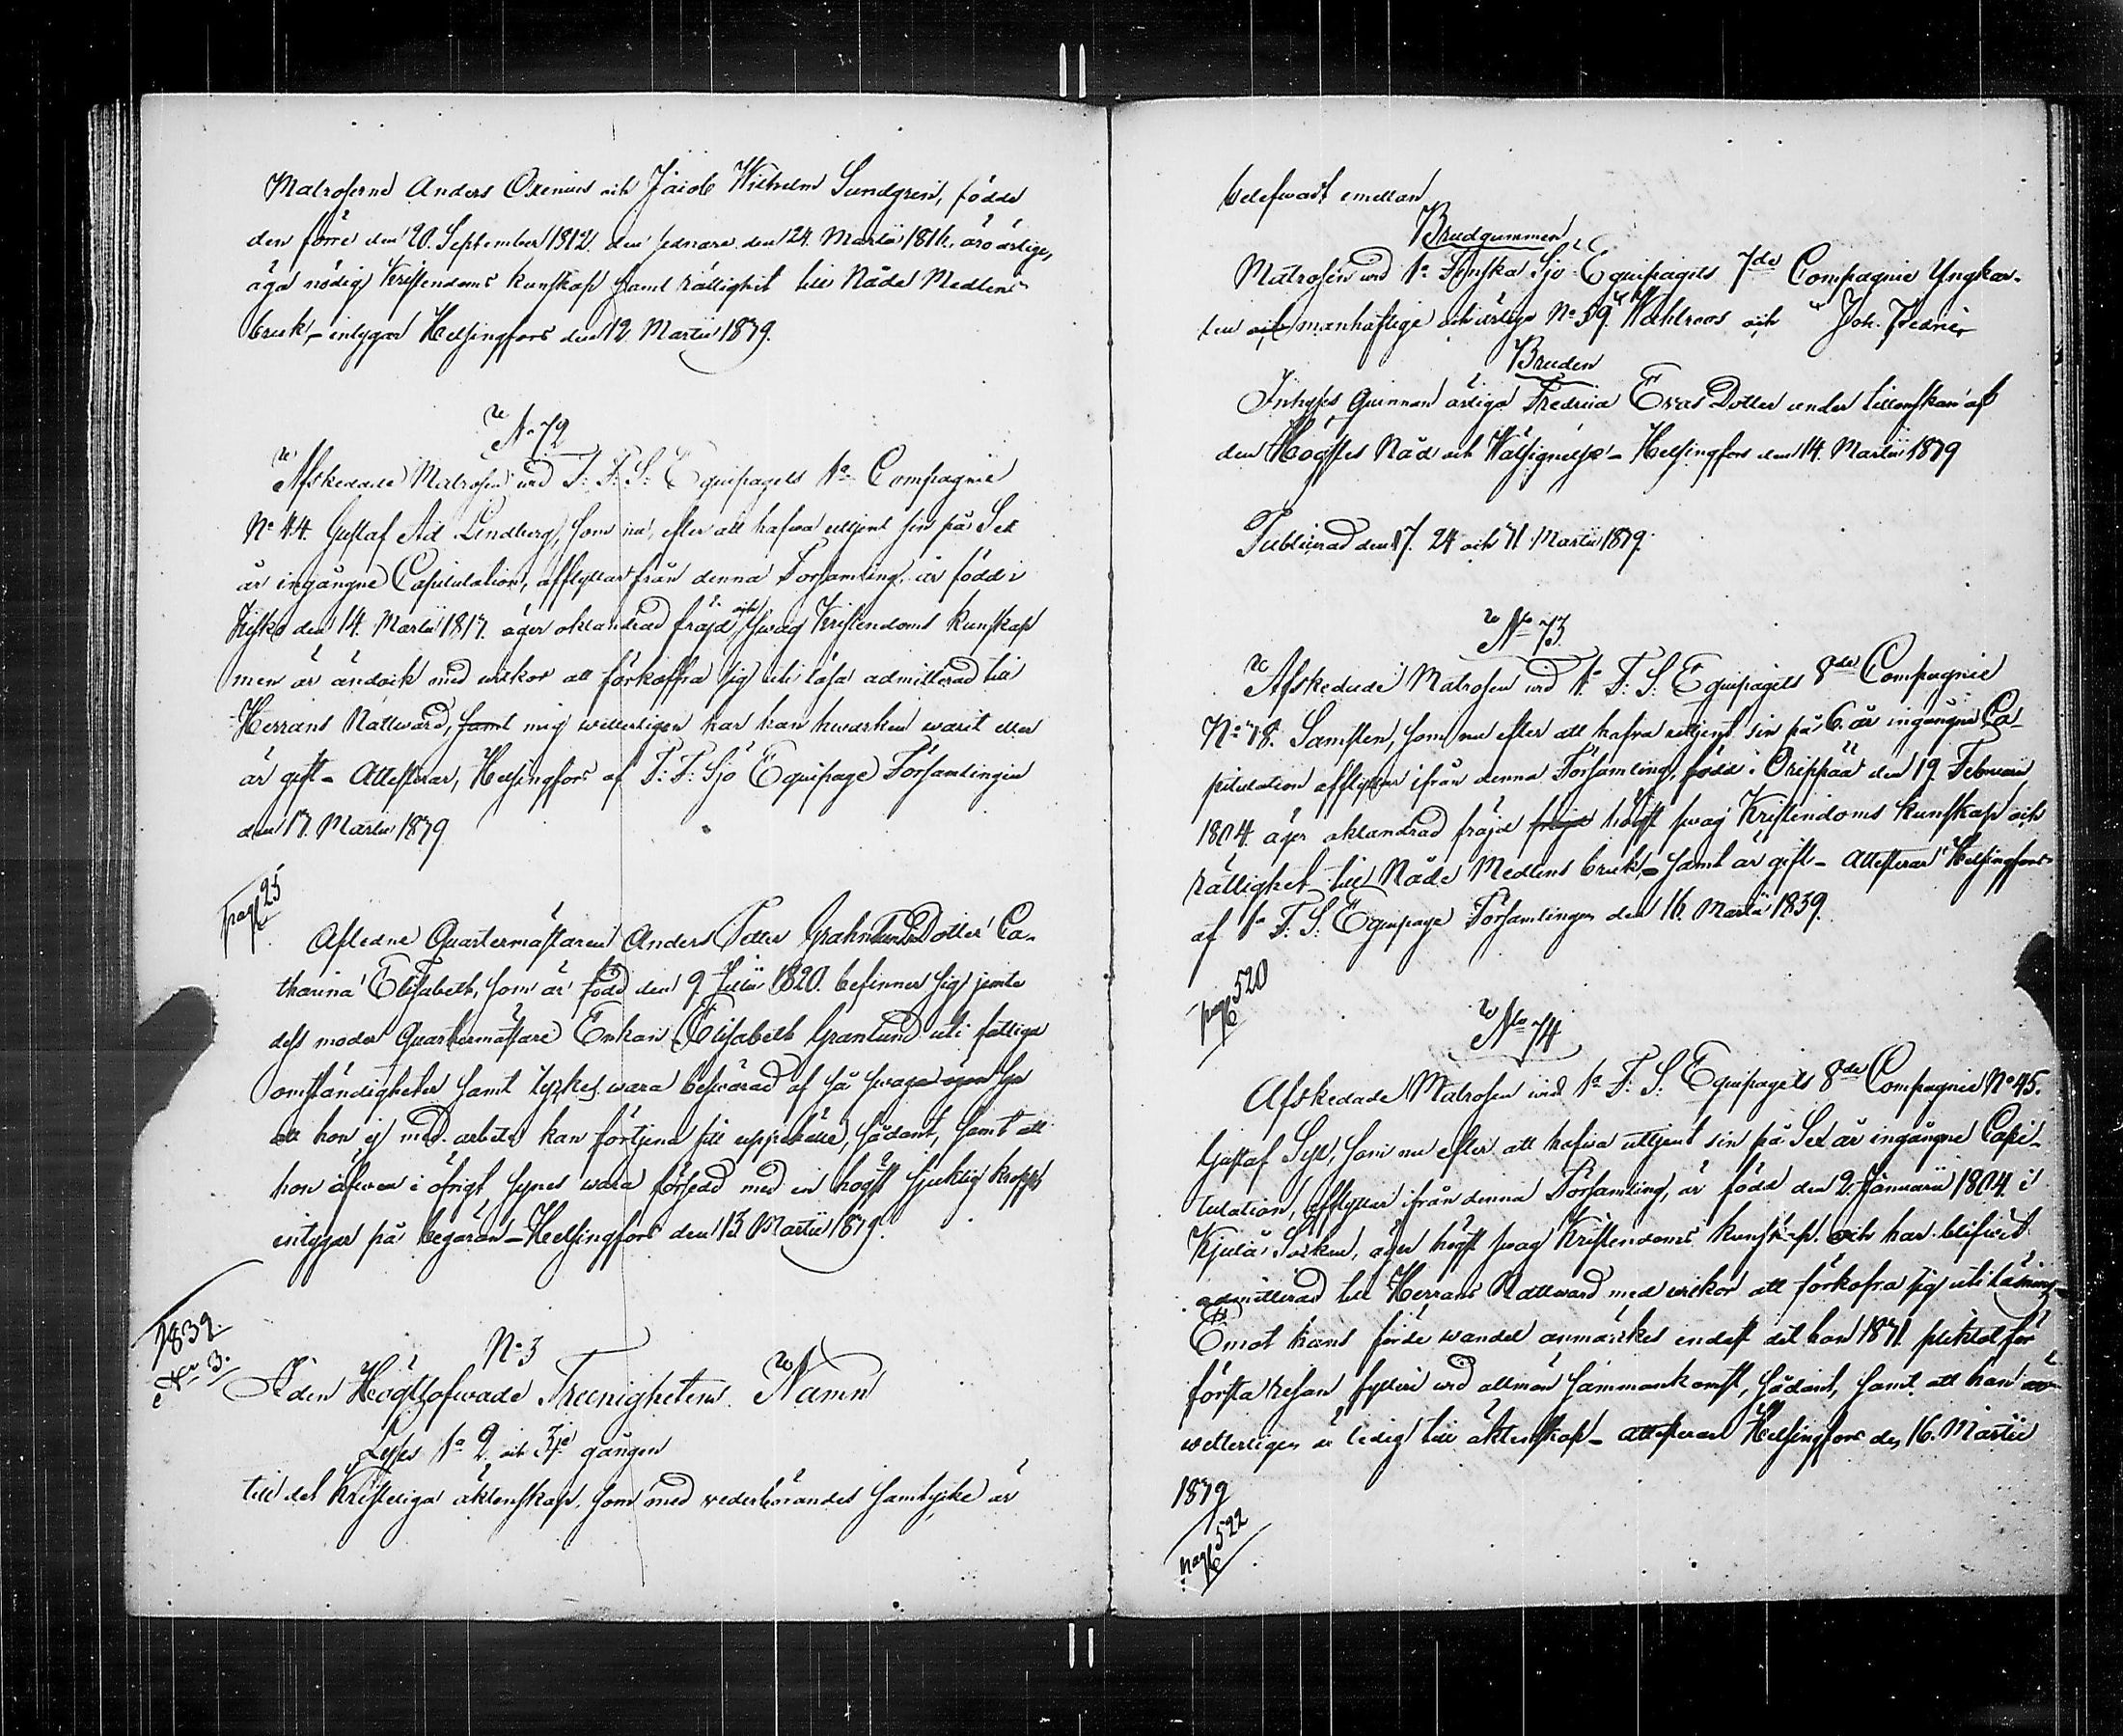 Matroserne Anders Oxenius och Jacob Wilhelm Sundgren, födde
den förre den 20. September 1812. den sednare den 24. Martii 1816. äro ärlige,
äga nödig Kristendoms kunskap samt rättighet till Nåde Medlens
bruk,- intygar Helsingfors den 12. Martii 1839.
No 72
Afskedade Matrosen vid 1: F: S: Equipagets 1a Compagnie
No 44. Gustaf Ad Lindberg, som nu, efter att hafva uttjent sin på Sex
år ingångne Capitulation, afflyttar från denna Församling, är född i
Kisko den 14. Martii 1813. äger oklandrad fräjd och Swag Kristendoms kunskap
men är ändock med wilkor att förkoffra sig uti läsa admitterad till
Herrans Nattward, samt mig wetterligen har han hwarken warit eller
är gift - Attesterar, Helsingfors af 1: F: Sjö Equipage Församlingen
den 13. Martii 1839
pag 25
Afledne Quartermästaren Anders Petter Grahnlunds Dotter Ca-
tharina Elisabeth, som är född den 9 Julii 1820. befinner sig jemte
dess moder Quartermästare Enkan Elisabeth Granlund uti fattiga
omständigheter samt tyckes wara beswärad af så swaga ögon
att hon ej med arbete kan förtjena sitt uppehälle, sådant, samt att
hon äfwen i öfrigt synes wara försedd med en högst sjuklig kropp
intygar på begäran - Helsingfors den 13 Martii 1839.
1839.
No 3.
No 3
I den Högtlofwade Treenighetens Namn
Lyses 1a 2 och 3je gången
till det Kristeliga äktenskap, som med wederbörandes samtycke är
belefwadt emellan
Brudgummen
Matrosen vid 1a Finska Sjö Equipagets 7de Compagnie Ynglin-
len och manhaftige och ärlige No 59. Wahlroos och Joh. Fredric
Bruden
Inhyses Quinnan ärliga Fredrica Evas Dotter under tillönskan af
den Högstes Nåd och Wälsignelse - Helsingfors den 14. Martii 1839
Publicerad den 17. 24 och 31 Martii 1839.
No 73.
Afskedade Matrosen vid 1a F: S: Equipagets 8de Compagnie
No 78. Samsten, som nu efter att hafva uttjent sin på 6. år ingångne Ca-
pitulation afflyttar ifrån denna Församling, född i Oripää den 19. Februarii
1804. äger oklandrad fräjd fräjd högst swag Kristendoms kunskap och
rättighet till Nåde Medlens bruk,- samt är gift - Attesterar Helsingfors
af 1a F: S: Equipage Församlingen den 16. Martii 1839.
pag 520
No 74
Afskedade Matrosen vid 1a F: S: Equipagets 8de Compagnie No 45.
Gustaf Syl, som nu efter att hafva uttjent sin på Sex år ingångne Capi-
tulation, afflyttar ifrån denna Församling, är född den 2. Januarii 1804. i
Kjulå Socken, äger högst swag Kristendoms kunskap. och har blifwit
admitterad till Herrans Nattward med wilkor att förkofra sig uti läsning.
Emot hans förde wandel anmärkes endast det han 1831. pliktat för
första resan fylleri vid allmän sammankomst, sådant, samt att han
wetterligen är ledig till äktenskap - attesterar Helsingfors den 16. Martii
1839
pag 522